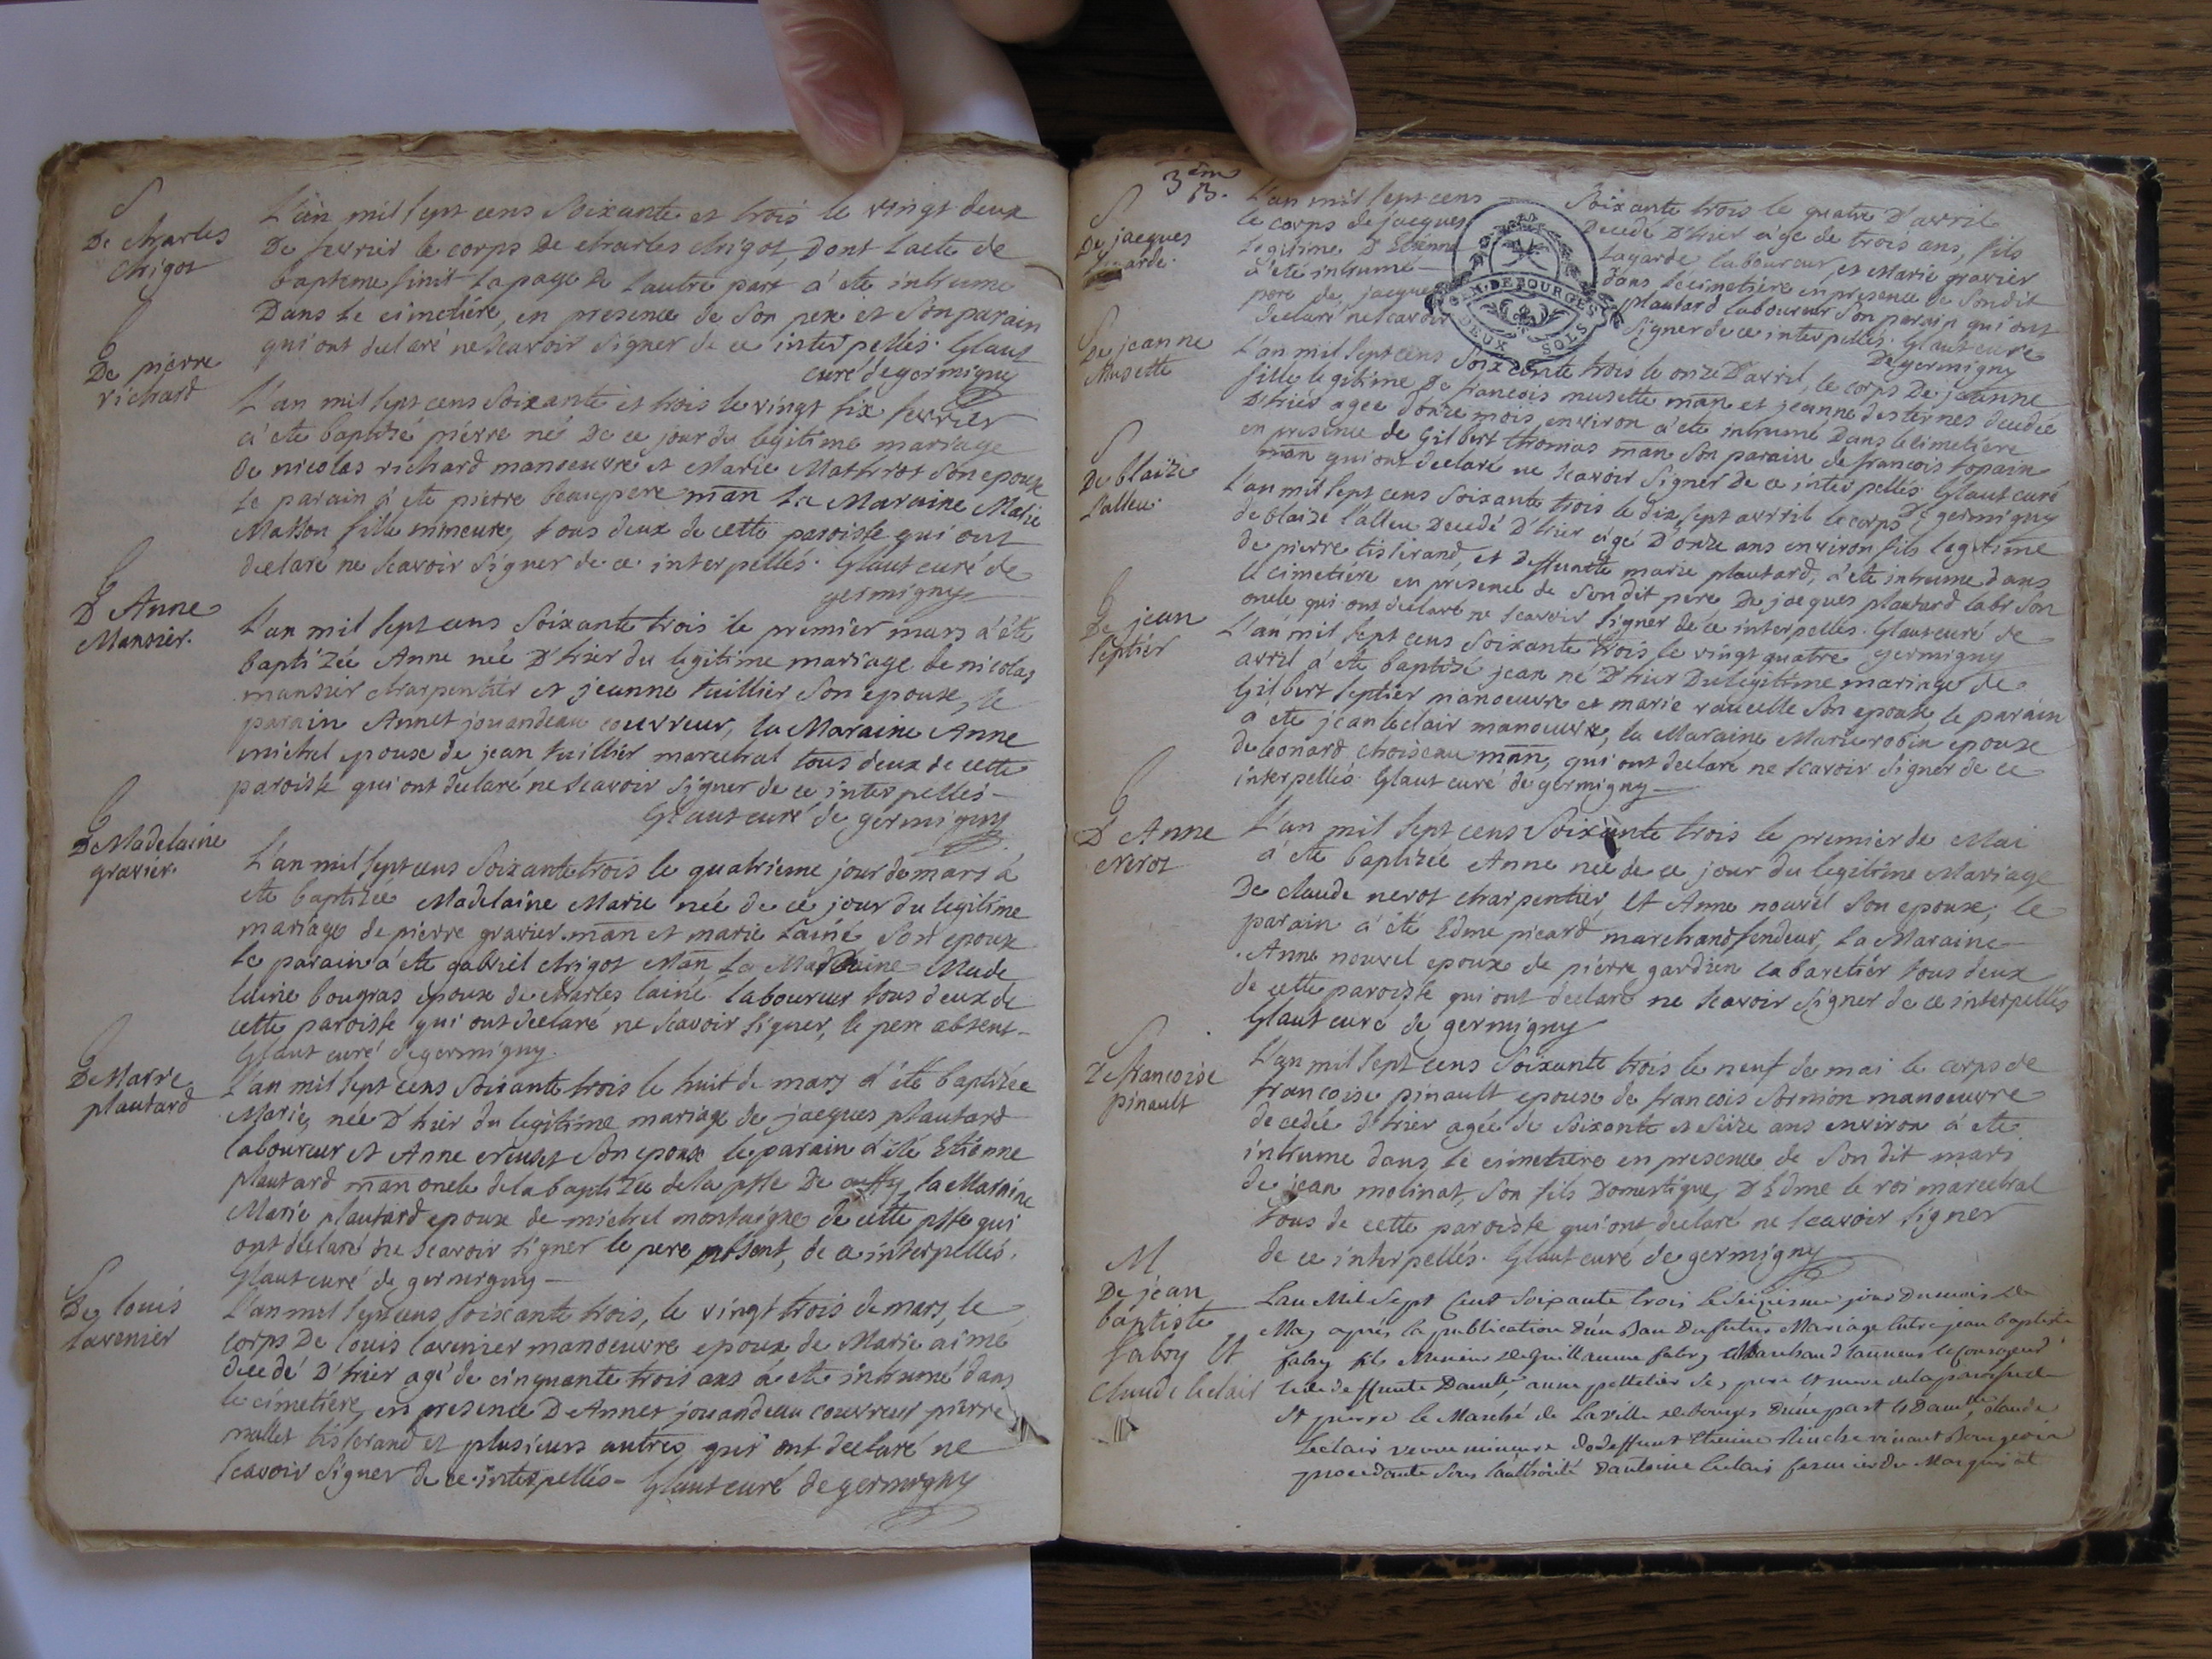 S
De charles
chigot
L'an mil sept cens Soixante et trois le vingt deux
De fevrier le corps De charles chigot, Dont l'acte de
bapteme finit la page de l'autre part à été inhumé
Dans le cimetiére, en presence de Son pere et Son parain
qui ont declaré ne Scavoir Signer de ce interpellés. Glaut
curé de germigny
b
De pierre
richard
L'an mil sept cens Soixante et trois le vingt six fevrier
à été baptisé piérre né De ce jour du legitime mariage
de nicolas richard manoeuvre et Marie Son epouse
le parain à eté pierre beaupere man la Maraine Marie
Masson fille mineure, tous deux de cette paroisse qui ont
declaré ne Scavoir Signer de ce interpellés. Glaut curé de
germigny
b
D'Anne
Mansiér.
L'an mil sept cens Soixante trois le premiér mars à été
baptizée Anne née D'hier du legitime mariage de nicolas
mansiér charpentiér et jeanne tuilliér Son epouse, le
parain Annet jouandeau couvreur, la Maraine Anne
michel epouse de jean tuilliér marechal tous deux de cette
paroisse qui ont declaré ne Scavoir Signer de ce interpellés-
Glaut curé de germigny
b
De Madelaine
graviér.
L'an mil sept cens Soixante trois le quatrieme jour de mars à
eté baptizée Madelaine Marie née de ce jour du legitime
mariage de pierre gravier man et marie Lainé Son epouse
le parain à eté gabriel chigot Man La Maraine Made
laine bougras epouse de charles lainé laboureur tous deux de
cette paroisse qui ont declaré ne Scavoir Signer, le pere absent-
Glaut curé de germigny.
b
De Marie
plautard
L'an mil sept cens Soixante trois le huit de mars à été baptizée
Marie, née D'hier du legitime mariage de jacques plautard
laboureur et Anne Son epouse le parain à été Etiénne
plautard man oncle de la baptizée de la psse De cuffy, la Maraine
Marie plautard epouse de michel montaigne de cette psse qui
ont declaré ne Scavoir Signer le pere present, de ce interpellés.
Glaut curé de germigny-
S
De louis
lavenier
L'an mil sept cens Soixante trois, le vingt trois de mars, le
corps De louis lavenier manoeuvre epoux de Marie aimé
decedé D'hier agé de cinquante trois ans à été inhumé dans
le cimetiére, en presence D'Annet jouandeau couvreur pierre
mullet tisserand et plusieurs autres qui ont declaré ne
Scavoir Signer de ce interpellés- Glaut curé de germigny
3em
B.
S
De jacques
lagarde.
L'an mil sept cens Soixante trois le quatre D'avril
le corps de jacques Decedé D'hier agé de trois ans, fils
legitime D'Etienne Lagarde laboureur et Marie gravier
à été inhumé- dans le cimetiére en presence de Son dit
pere de jacques plautard laboureur Son parain qui ont
declaré ne Scavoir Signer de ce interpellés. Glaut curé
De germigny
GEN. DE BOURGES
DEUX SOLS
S
De jeanne
Musette
L'an mil sept cens Soixante trois le onze D'avril, le corps De jeanne
fille legitime De francois musette man et jeanne desternes decedée
D'hiér agée d'onze mois environ à été inhumé Dans le cimetiére
en presence de Gilbert thomas man Son parain de francois topain
man qui ont declaré ne Scavoir Signer De ce interpellés Glaut curé
De germigny
S
De blaize
l'alleu.
L'an mil sept cens Soixante trois le dix sept avril le corps
de blaise l'alleu Decedé D'hier agé D'onze ans environ fils legitime
de pierre tisserand, et deffuntte marie plautard, à été inhumé dans
le cimetiére en présence de Son dit pere De jacques plautard labr Son
oncle qui ont declaré ne Scavoir Signer de ce interpellés. Glaut curé de
germigny
b
De jean
Septiér
L'an mil sept cens Soixante trois le vingt quatre
avril à été baptisé jean né D'hier Du legitime mariage de
Gilbert Septiér manoeuvre et marie raucelle Son epouse, le parain
à été jean leclair manoeuvre, la Maraine Marie robin epouse
de Leonard choiseau man, qui ont declaré ne Scavoir Signer de ce
interpellés Glaut curé de germigny-
b
D'Anne
Nerot
L'an mil sept cens Soixante trois le premier de Mai
à été baptizée Anne née de ce jour du legitime Mariage
De claude nerot charpentier, et Anne nouvel Son epouse, le
parain à été Edme picard marchand fendeur, La Maraine
Anne nouvel epouse de piérre gardien cabaretiér tous deux
de cette paroisse qui ont declaré ne Scavoir Signer de ce interpellés
Glaut curé de germigny
S
De francoise
pinault
L'an mil sept cens Soixante trois le neuf de mai le corps de
francoise pinault epouse de francois Sornion manoeuvre
decedée d'hier agée de Soixante et Seize ans environ à eté
inhumé dans le cimetiére en presence de Son dit mari
de jean molinat, Son fils Domestique, D'Edme le roi marechal
tous de cette paroisse qui ont declaré ne Scavoir Signer
de ce interpellés. Glaut curé de germigny
M
De jean
baptiste
fabry et
claude leclair
L'an Mil Sept Cent Soixante trois le Seizieme jour du mois de
May après la publication d'un Ban du futur Mariage entre jean baptiste
fabry fils Mineur de guillaume fabry Marchand tanneur
et de deffunte Damlle anne pelletier Ses pere et mere de la paroisse de
St pierre le Marché de la ville de bourges d'une part et Damlle claude
leclair veuve mineure de deffunt Etienne vivant Bourgeois
procedante Sous l'authorité d'antoine leclair fermier du Marquisat